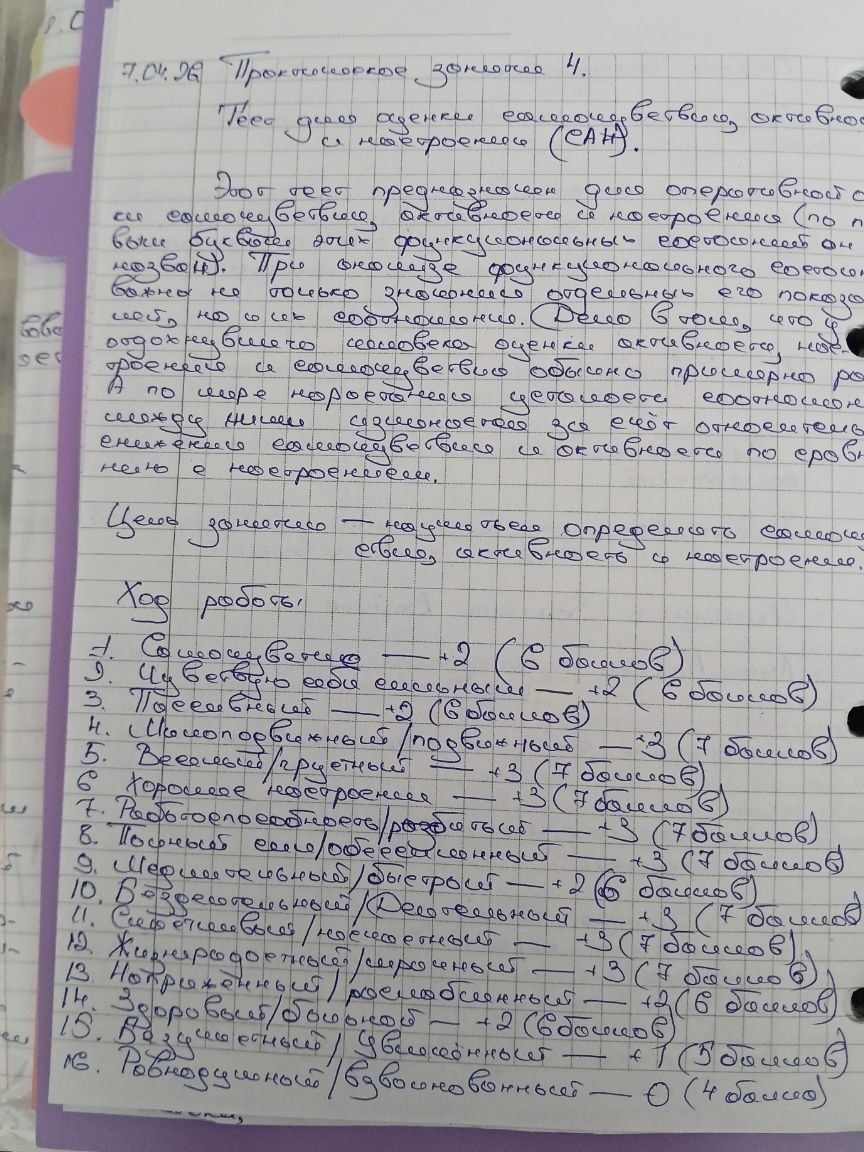 7.04.26 Практическое занятие 4.
Тест для оценки самочувствия, активнос
и настроения (САН).
Этот тест предназначен для оперативной о
ки самочувствия, активности и настроения (по п
вым буквам этих функциональных состояний он
назван). При анализе функционального состоя
важны не только значения отдельных его показа
лей, но и их соотношение. (Дело в том, что у
отдохнувшего человека оценки активности, нас-
троения и самочувствия обычно примерно ра
А по мере нарастания усталости соотношен
между ними изменяется за счёт относитель
снижения самочувствия и активности по сравн
нию с настроением.
Цель занятия — научиться определять самочу
ствие, активность и настроение.
Ход работы
1. Самочувствие — +2 (6 баллов)
2. Чувствую себя сильным — +2 (6 баллов)
3. Пассивный — +2 (6 баллов)
4. Малоподвижный/подвижный — +3 (7 баллов)
5. Веселый/грустный — +3 (7 баллов)
6 Хорошее настроение — +3 (7 баллов)
7. Работоспособность/разбитый — +3 (7 баллов)
8. Полный сил/обессиленный — +3 (7 баллов)
9. Медлительный/быстрый — +2 (6 баллов)
10. Бездеятельный/Деятельный — +3 (7 баллов)
11. Счастливый/несчастный — +3 (7 баллов)
12. Жизнерадостный/мрачный — +3 (7 баллов)
13 Напряжённый/расслабленный — +2 (6 баллов)
14. Здоровый/больной — +2 (6 баллов)
15. Безучастный/увлечённый — +1 (5 баллов)
16. Равнодушный/взволнованный — 0 (4 балла)